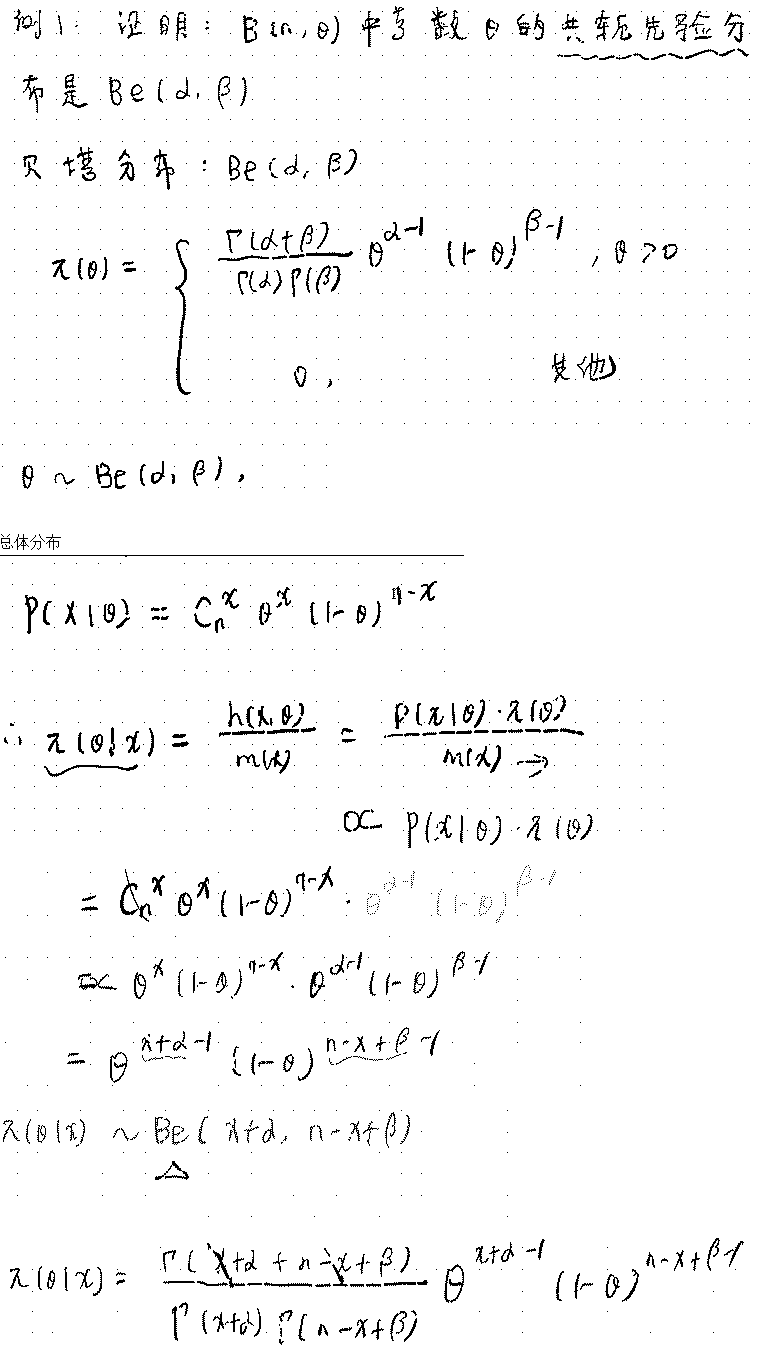 例1: 证明: B(n,θ)中参数θ的共轭先验分
布是Be(α,β)
贝塔分布: Be(α,β)
π(θ) = { Γ(α+β)/(Γ(α)Γ(β)) θ^(α-1) (1-θ)^(β-1), θ>0
0, 其他
θ ~ Be(α,β),
总体分布
P(X|θ) = C_n^x θ^x (1-θ)^(n-x)
∴ π(θ|x) = h(x,θ)/m(x) = P(x|θ)·π(θ)/m(x) →
∝ P(x|θ)·π(θ)
= C_n^x θ^x (1-θ)^(n-x) · θ^(α-1) (1-θ)^(β-1)
∝ θ^x (1-θ)^(n-x) · θ^(α-1) (1-θ)^(β-1)
= θ^(x+α-1) (1-θ)^(n-x+β-1)
π(θ|x) ~ Be(x+α, n-x+β)
π(θ|x) = Γ(x+α+n-x+β)/(Γ(x+α)Γ(n-x+β)) θ^(x+α-1) (1-θ)^(n-x+β-1)